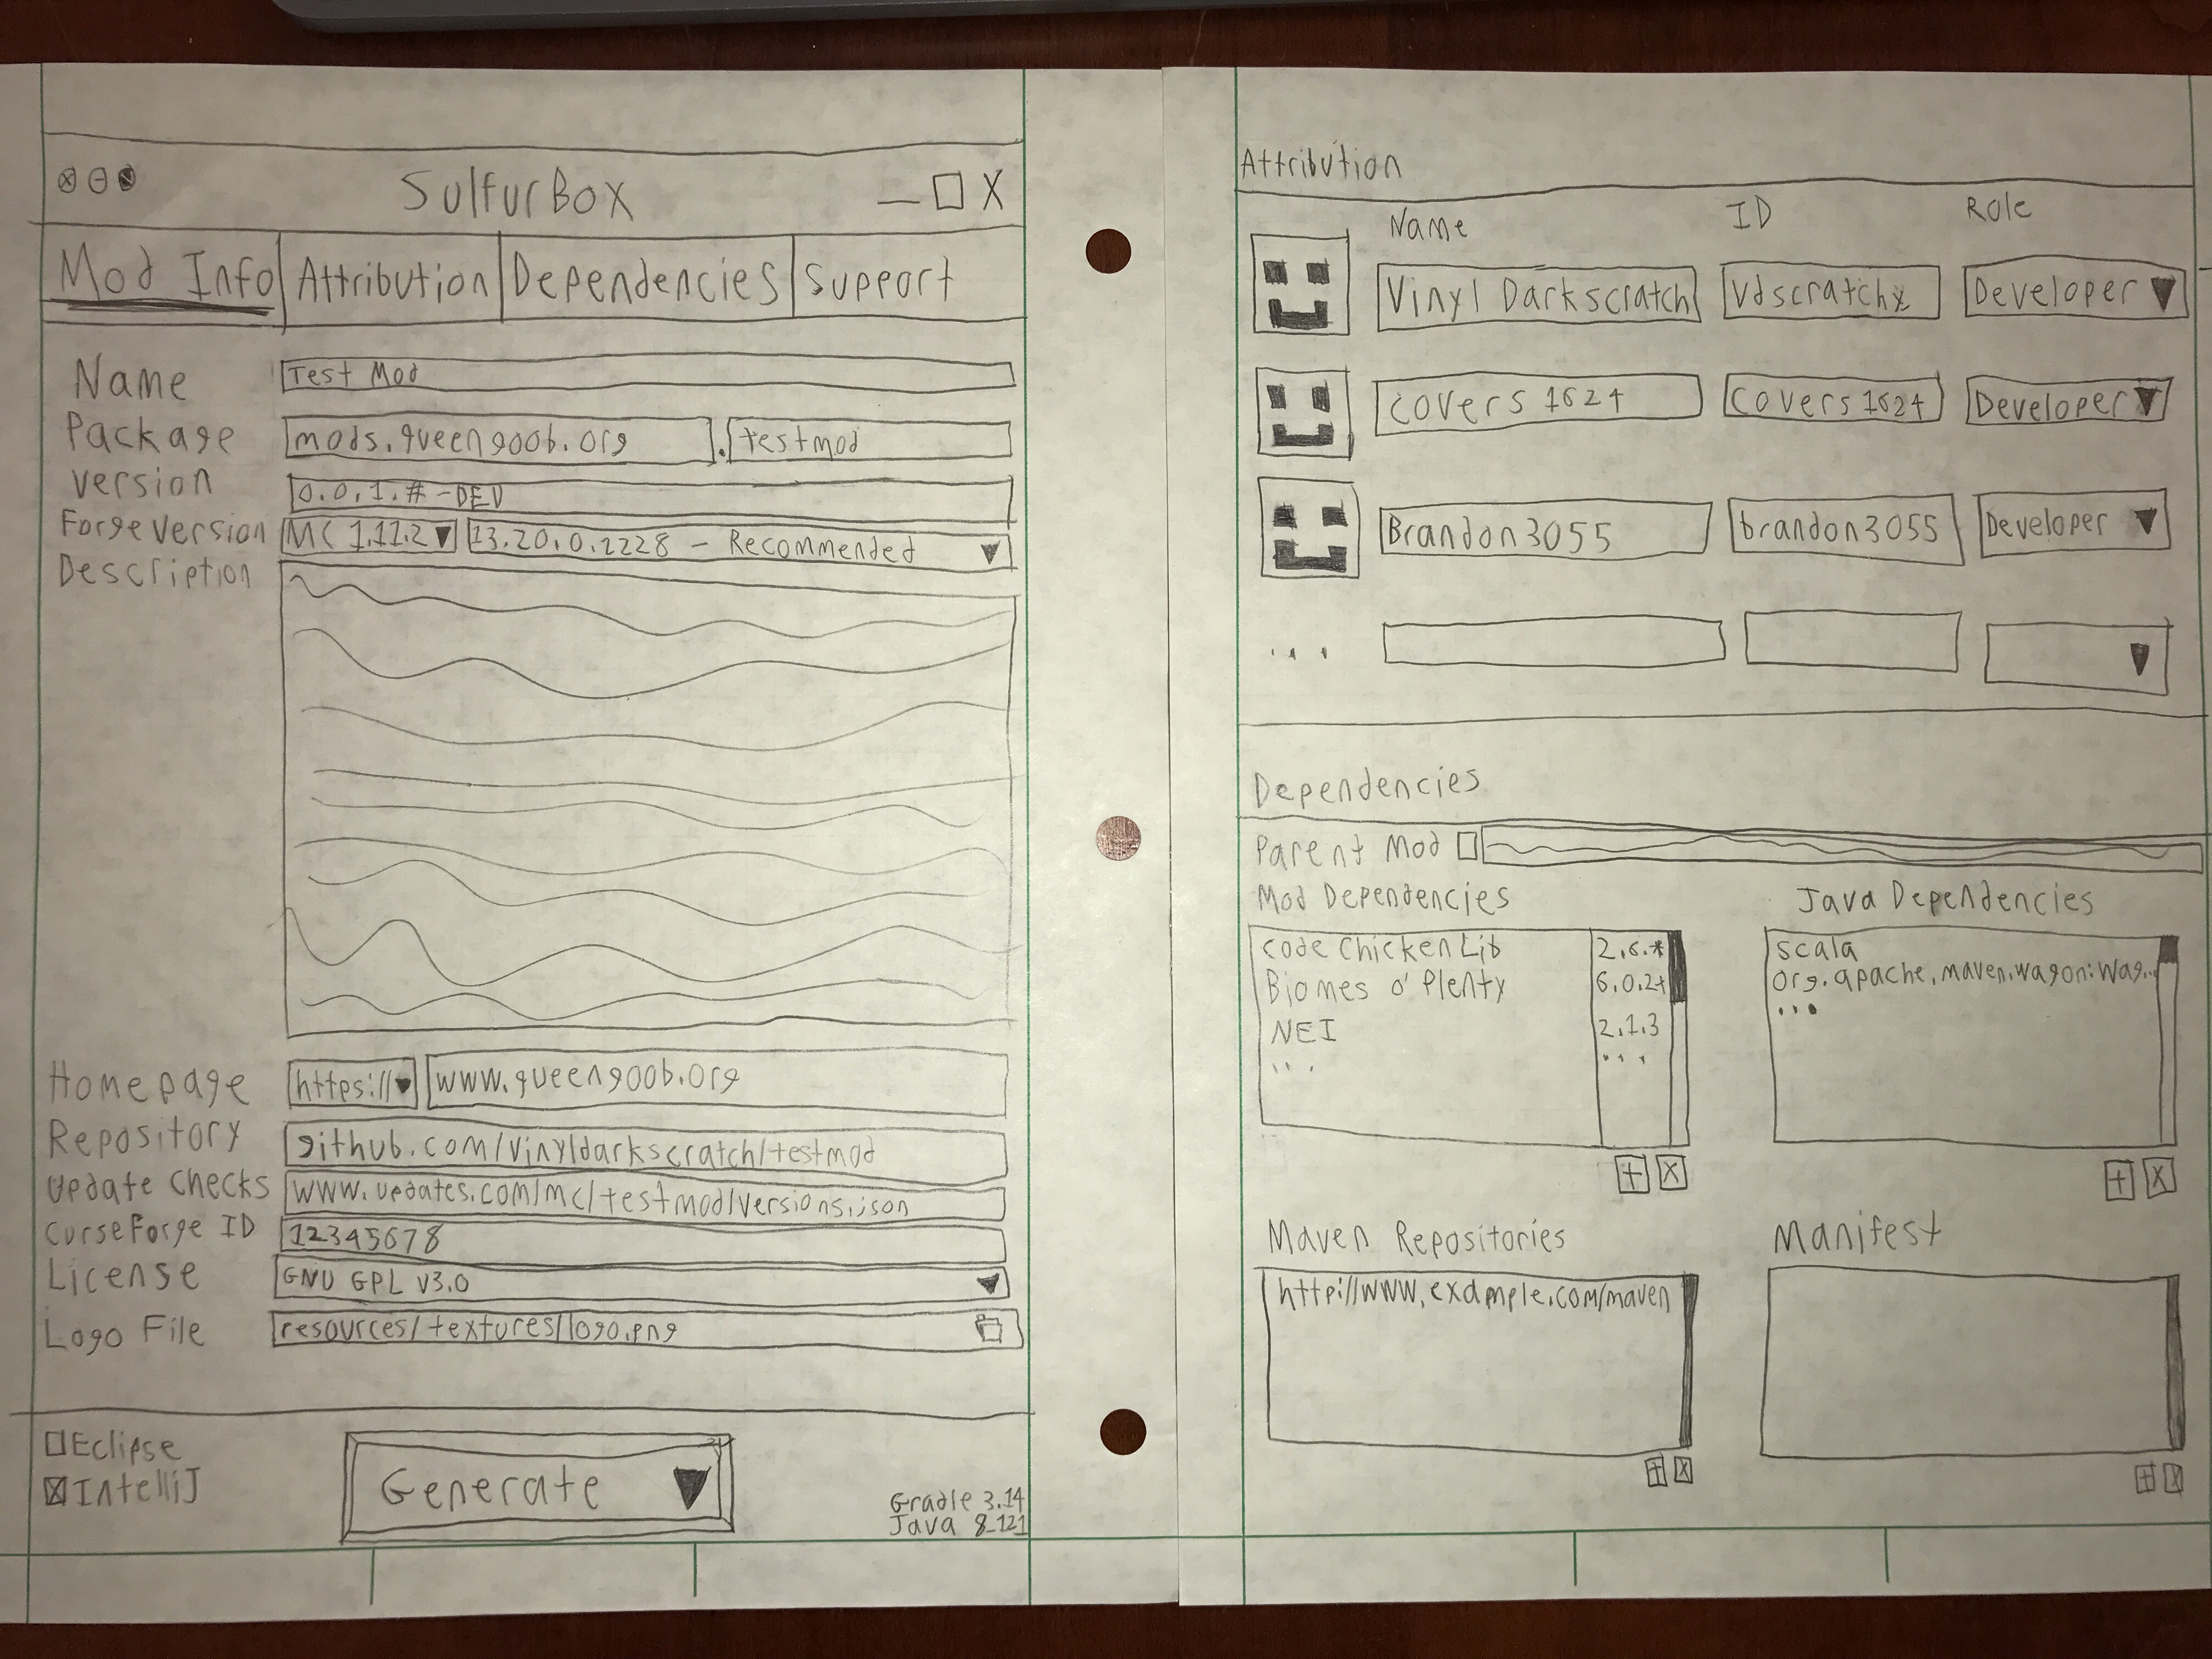 SulfurBox
Mod Info Attribution Dependencies Support
Name Test Mod
Package mods.queengoob.org . testmod
Version 0.0.1.#-DEV
Forge Version MC 1.11.2 13.20.0.2228 - Recommended
Description
Homepage https:// www.queengoob.org
Repository github.com/vinyldarkscratch/testmod
Update Checks www.updates.com/mc/testmod/versions.json
CurseForge ID 12345678
License GNU GPL v3.0
Logo File resources/textures/logo.png
Eclipse
IntelliJ
Generate
Gradle 3.14
Java 8_121
Attribution
Name ID Role
Vinyl Darkscratch vdscratchx Developer
covers1624 covers1624 Developer
Brandon3055 brandon3055 Developer
...
Dependencies
Parent Mod
Mod Dependencies
Code Chicken Lib 2.6.*
Biomes o' Plenty 6.0.2+
NEI 2.1.3
... ...
Java Dependencies
scala
org.apache.maven.wagon:wag...
...
Maven Repositories
http://www.example.com/maven
Manifest